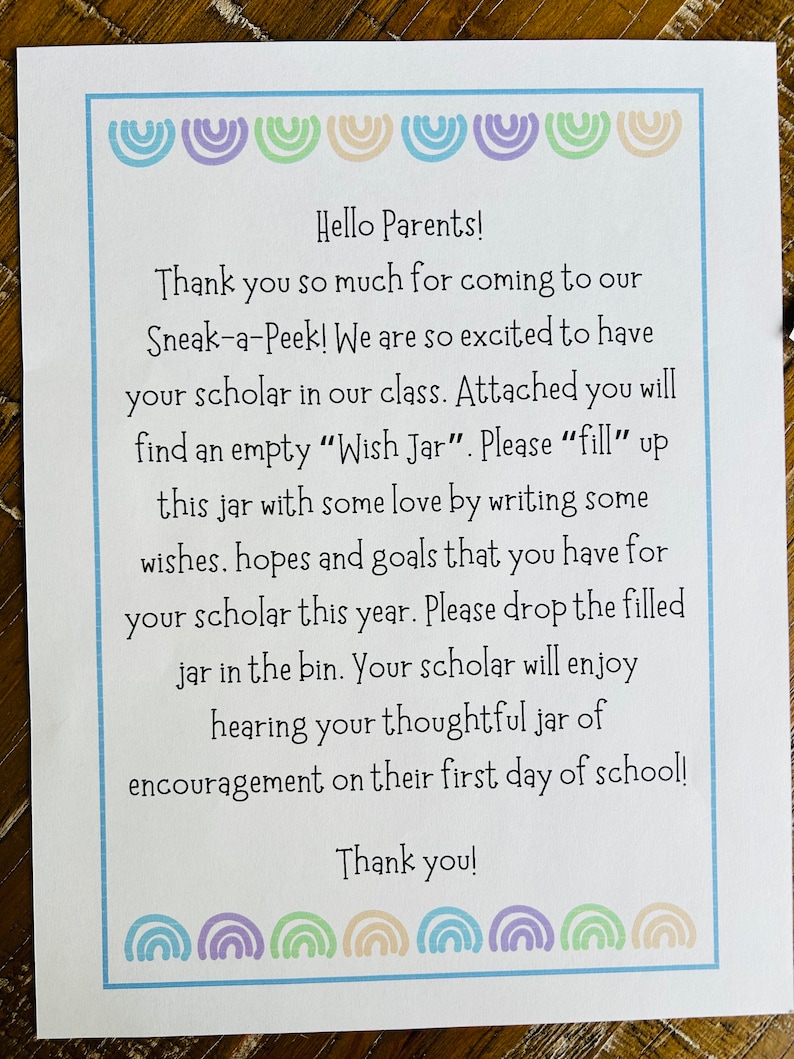 Hello Parents!
Thank you so much for coming to our
Sneak-a-Peek! We are so excited to have
your scholar in our class. Attached you will
find an empty “Wish Jar”. Please “fill” up
this jar with some love by writing some
wishes, hopes and goals that you have for
your scholar this year. Please drop the filled
jar in the bin. Your scholar will enjoy
hearing your thoughtful jar of
encouragement on their first day of school!
Thank you!